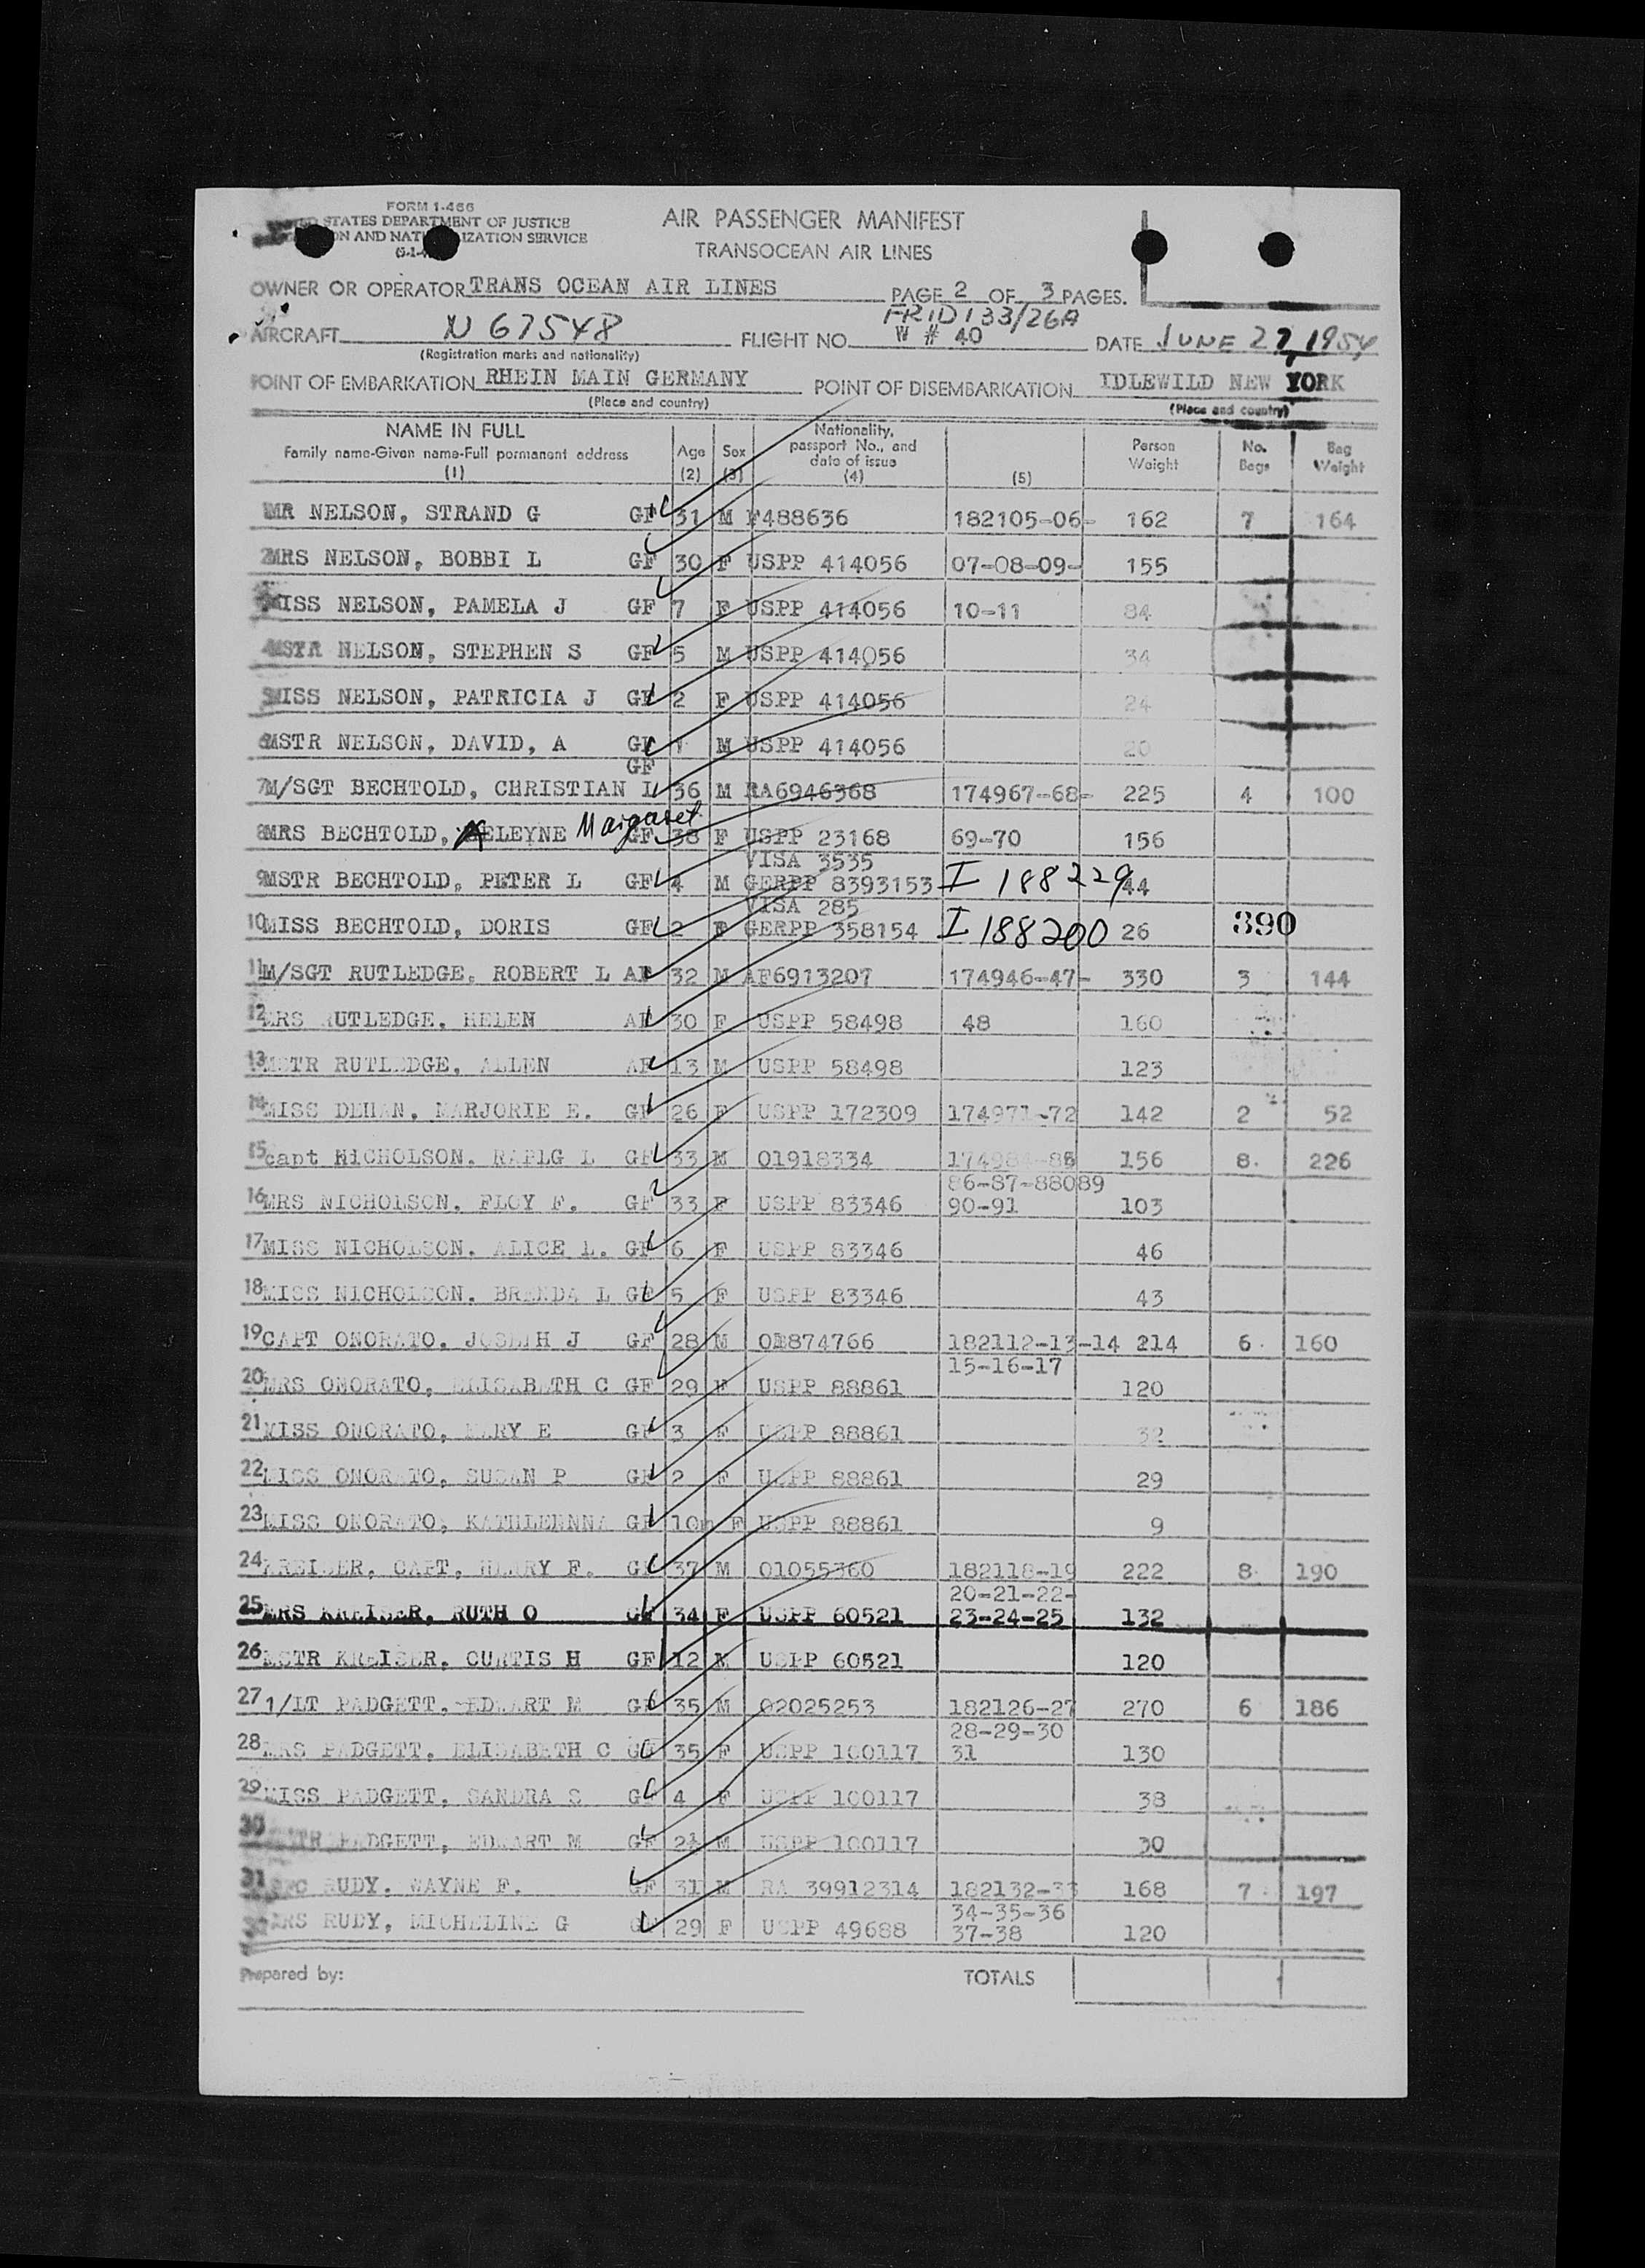 FORM I-466
STATES DEPARTMENT OF JUSTICE
ON AND NAT IZATION SERVICE
AIR PASSENGER MANIFEST
TRANSOCEAN AIR LINES
OWNER OR OPERATOR TRANS OCEAN AIR LINES PAGE 2 OF 3 PAGES.
FRID133/26A
AIRCRAFT N 67548 FLIGHT NO. W # 40 DATE JUNE 27, 1954
(Registration marks and nationality)
POINT OF EMBARKATION RHEIN MAIN GERMANY POINT OF DISEMBARKATION IDLEWILD NEW YORK
(Place and country) (Place and country)
NAME IN FULL
Family name-Given name-Full permanent address
(1)
Age
(2)
Sex
(3)
Nationality,
passport No., and
date of issue
(4)
(5)
Person
Weight
No.
Bags
Bag
Weight
MR NELSON, STRAND G GF 31 M F488636 182105-06- 162 7 164
2 MRS NELSON, BOBBI L GF 30 F USPP 414056 07-08-09- 155
MISS NELSON, PAMELA J GF 7 F USPP 414056 10-11 84
4 MSTR NELSON, STEPHEN S GF 5 M USPP 414056 34
5 MISS NELSON, PATRICIA J GF 2 F USPP 414056 24
6 MSTR NELSON, DAVID, A GF 1 M USPP 414056 20
GF
7 M/SGT BECHTOLD, CHRISTIAN L 36 M RA6946368 174967-68- 225 4 100
8 MRS BECHTOLD, ELEYNE Margaret GF 38 F USPP 23168 69-70 156
VISA 3535
9 MSTR BECHTOLD, PETER L GF 4 M GERPP 8393153 I 188229 44
VISA 285
10 MISS BECHTOLD, DORIS GF 2 F GERPP 358154 I 188200 26 390
11 M/SGT RUTLEDGE, ROBERT L AF 32 M AF6913207 174946-47- 330 3 144
12 MRS RUTLEDGE, HELEN AF 30 F USPP 58498 48 160
13 MSTR RUTLEDGE, ALLEN AF 13 M USPP 58498 123
14 MISS DEHAN, MARJORIE E. GF 26 F USPP 172309 174971-72 142 2 52
15 capt NICHOLSON. RAPLG L GF 33 M 01918334 156 8. 226
86-87-88089
16 MRS NICHOLSON. FLOY F. GF 33 F USPP 83346 90-91 103
17 MISS NICHOLSON. ALICE L. GF 6 F USPP 83346 46
18 MISS NICHOLSON. BRENDA L GF 5 F USPP 83346 43
19 CAPT ONORATO. JOSEPH J GF 28 M 182112-13-14 214 6. 160
15-16-17
20 MRS ONORATO, ELISABETH C GF 29 F USPP 88861 120
21 MISS ONORATO, MARY E GF 3 F USPP 88861 32
22 MISS ONORATO, SUSAN P GF 2 F USPP 88861 29
23 MISS ONORATO, KATHLEENNNA GF 10m F USPP 88861 9
24 KREISER, CAPT, HENRY F. GF 37 M 01055360 182118-19 222 8. 190
20-21-22-
25 MRS KREISER, RUTH O GF 34 F USPP 60521 23-24-25 132
26 MSTR KREISER, CURTIS H GF 12 M USPP 60521 120
27 1/LT PADGETT, EDWART M GF 35 M 02025253 182126-27 270 6 186
28-29-30
28 MRS PADGETT, ELISABETH C GF 35 F USPP 100117 31 130
29 MISS PADGETT, SANDRA S GF 4 F USPP 100117 38
30 MSTR PADGETT, EDWART M GF 2½ M USPP 100117 30
31 SFC RUDY. WAYNE F. GF 31 M RA 39912314 182132-33 168 7. 197
34-35-36
MRS RUDY, MICHELINE G GF 29 F USPP 49688 37-38 120
Prepared by: TOTALS